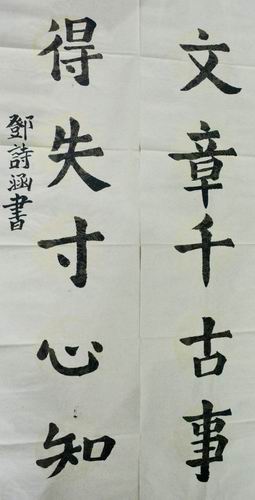 文章千古事
得失寸心知
鄧詩涵書